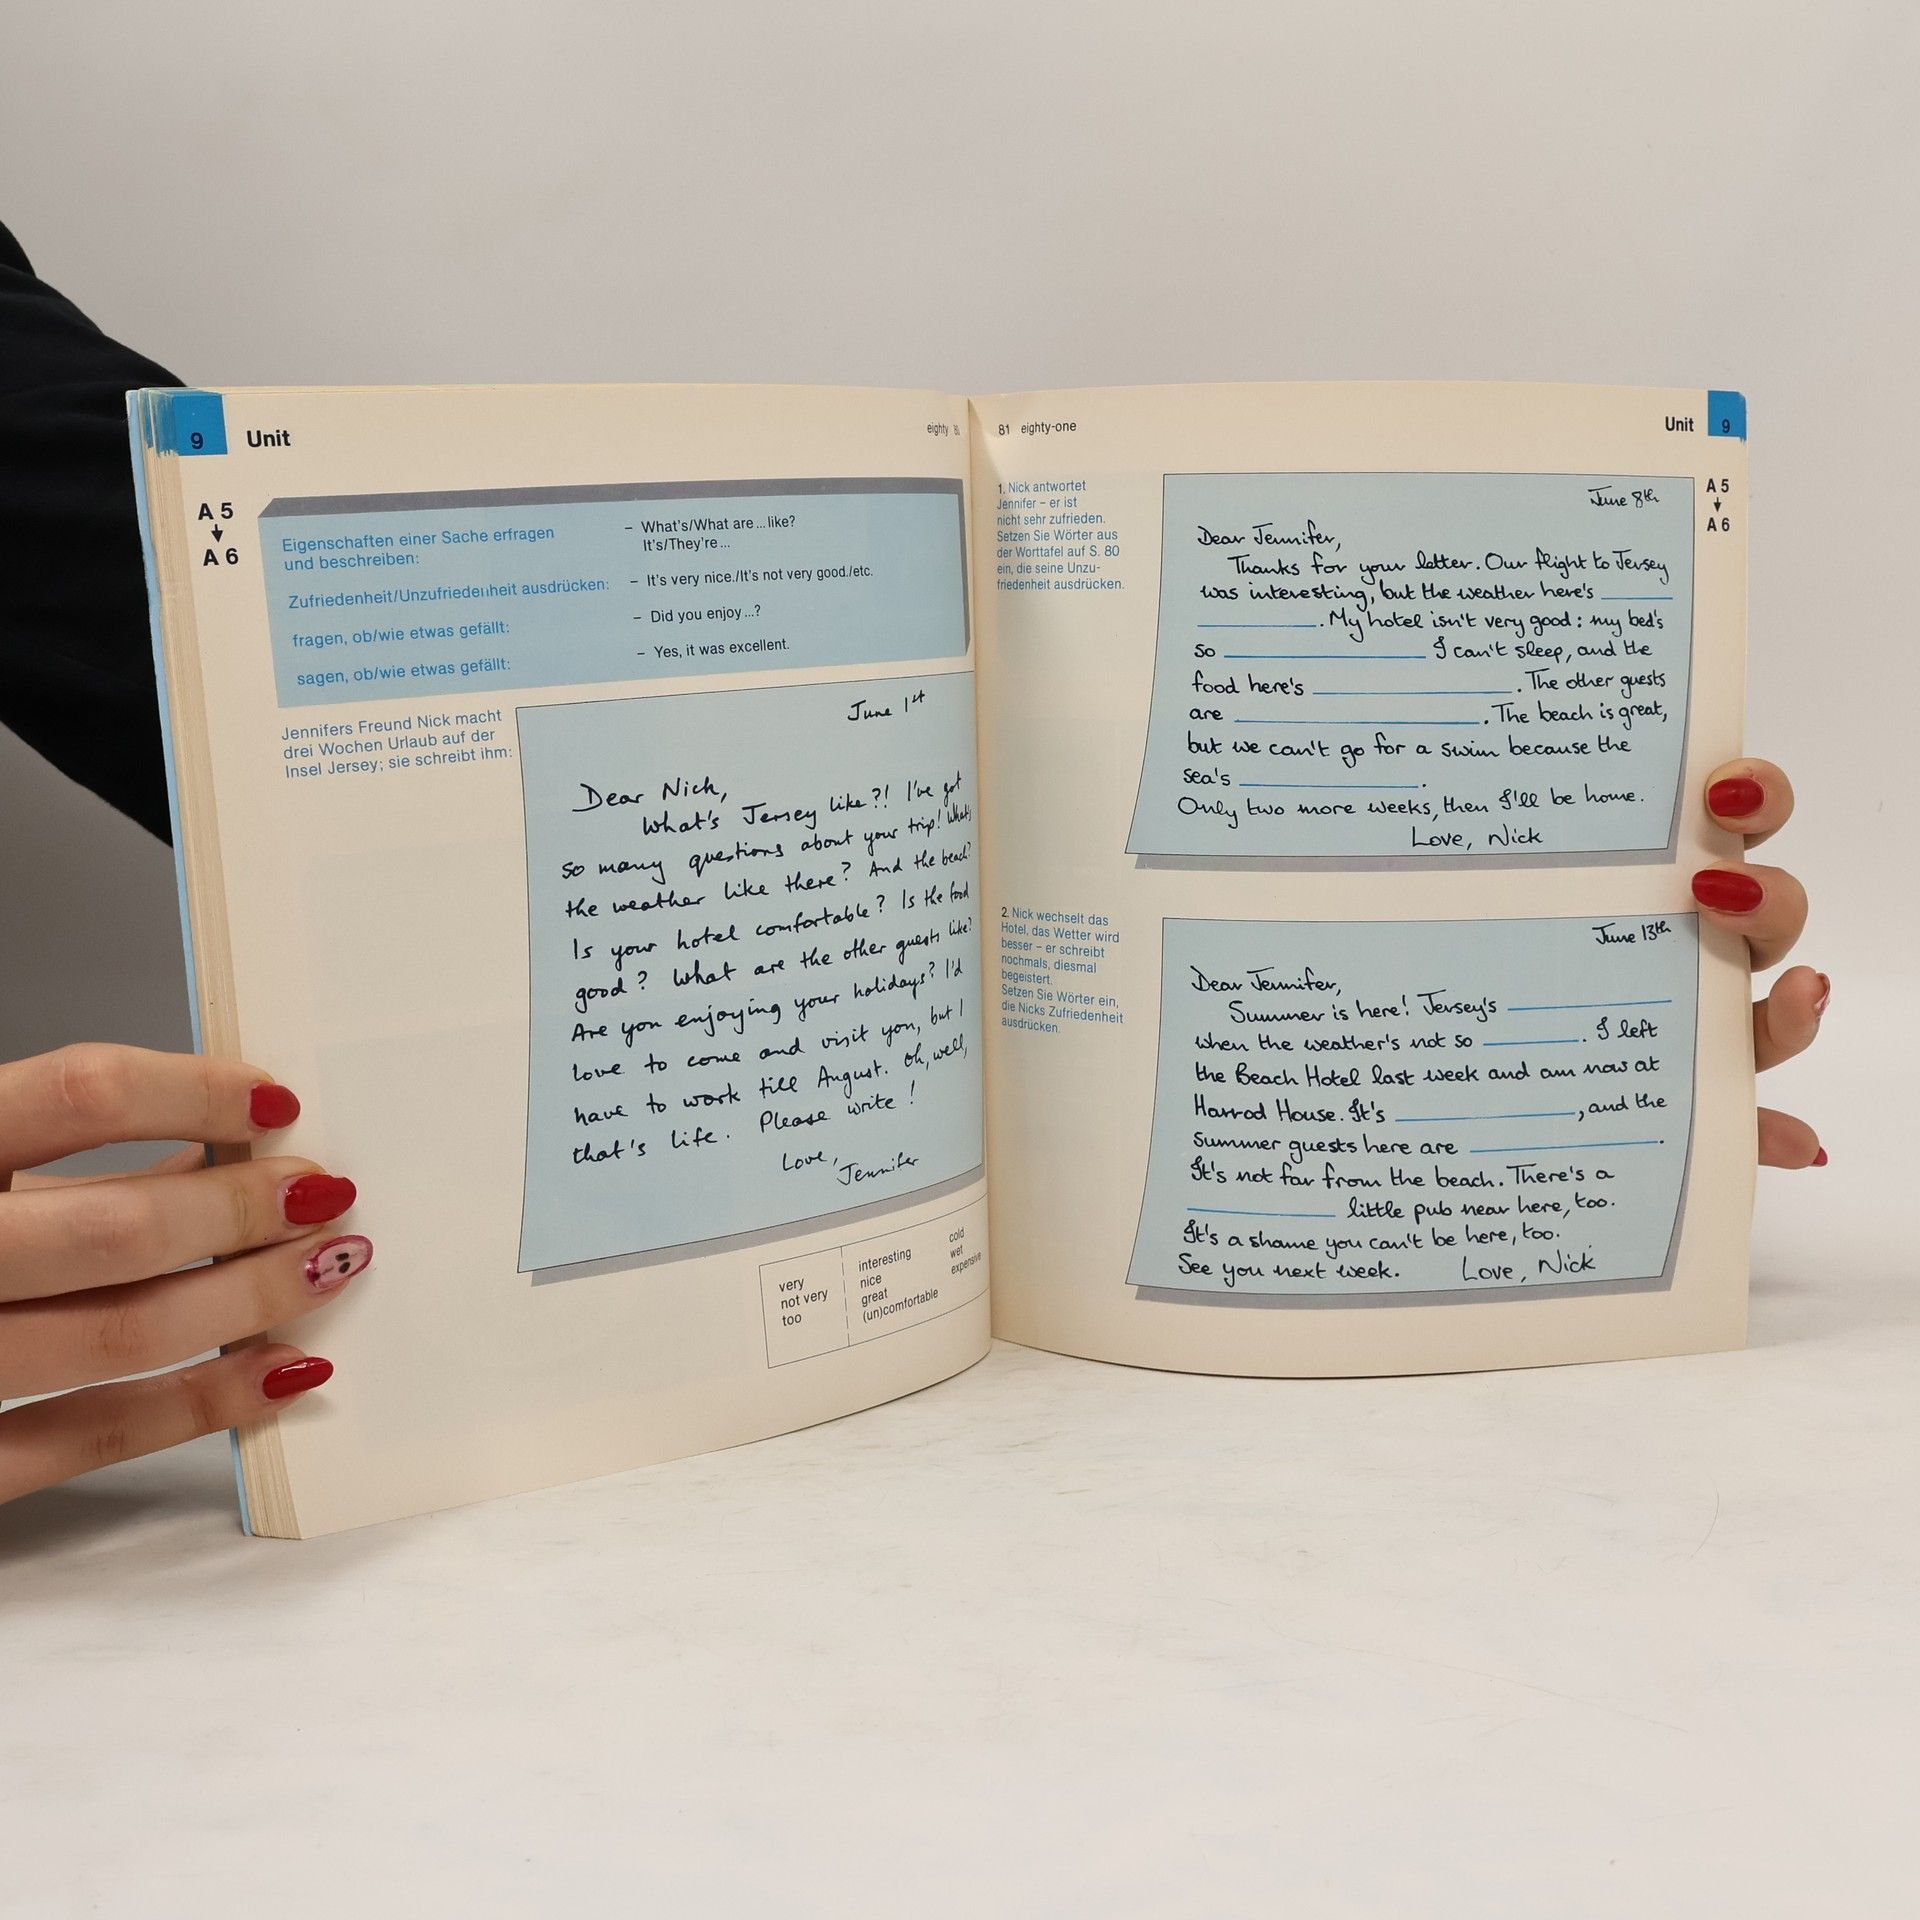 9 Unit
eighty 80
A 5
A 6
Eigenschaften einer Sache erfragen
und beschreiben:
– What's/What are ... like?
It's/They're ...
Zufriedenheit/Unzufriedenheit ausdrücken:
– It's very nice./It's not very good./etc.
fragen, ob/wie etwas gefällt:
– Did you enjoy ...?
sagen, ob/wie etwas gefällt:
– Yes, it was excellent.
Jennifers Freund Nick macht
drei Wochen Urlaub auf der
Insel Jersey; sie schreibt ihm:
June 1st
Dear Nick,
What's Jersey like?! I've got
so many questions about your trip! What's
the weather like there? And the beach?
Is your hotel comfortable? Is the food
good? What are the other guests like?
Are you enjoying your holidays? I'd
love to come and visit you, but I
have to work till August. Oh, well,
that's life. Please write!
Love,
Jennifer
very
not very
too
interesting
nice
great
(un)comfortable
cold
wet
expensive
81 eighty-one
Unit 9
A 5
A 6
1. Nick antwortet
Jennifer – er ist
nicht sehr zufrieden.
Setzen Sie Wörter aus
der Worttafel auf S. 80
ein, die seine Unzu-
friedenheit ausdrücken.
June 8th
Dear Jennifer,
Thanks for your letter. Our flight to Jersey
was interesting, but the weather here's ______
______. My hotel isn't very good: my bed's
so ______ I can't sleep, and the
food here's ______. The other guests
are ______. The beach is great,
but we can't go for a swim because the
sea's ______.
Only two more weeks, then I'll be home.
Love, Nick
2. Nick wechselt das
Hotel, das Wetter wird
besser – er schreibt
nochmals, diesmal
begeistert.
Setzen Sie Wörter ein,
die Nicks Zufriedenheit
ausdrücken.
June 13th
Dear Jennifer,
Summer is here! Jersey's ______
when the weather's not so ______. I left
the Beach Hotel last week and am now at
Harrod House. It's ______, and the
summer guests here are ______.
It's not far from the beach. There's a
______ little pub near here, too.
It's a shame you can't be here, too.
See you next week. Love, Nick